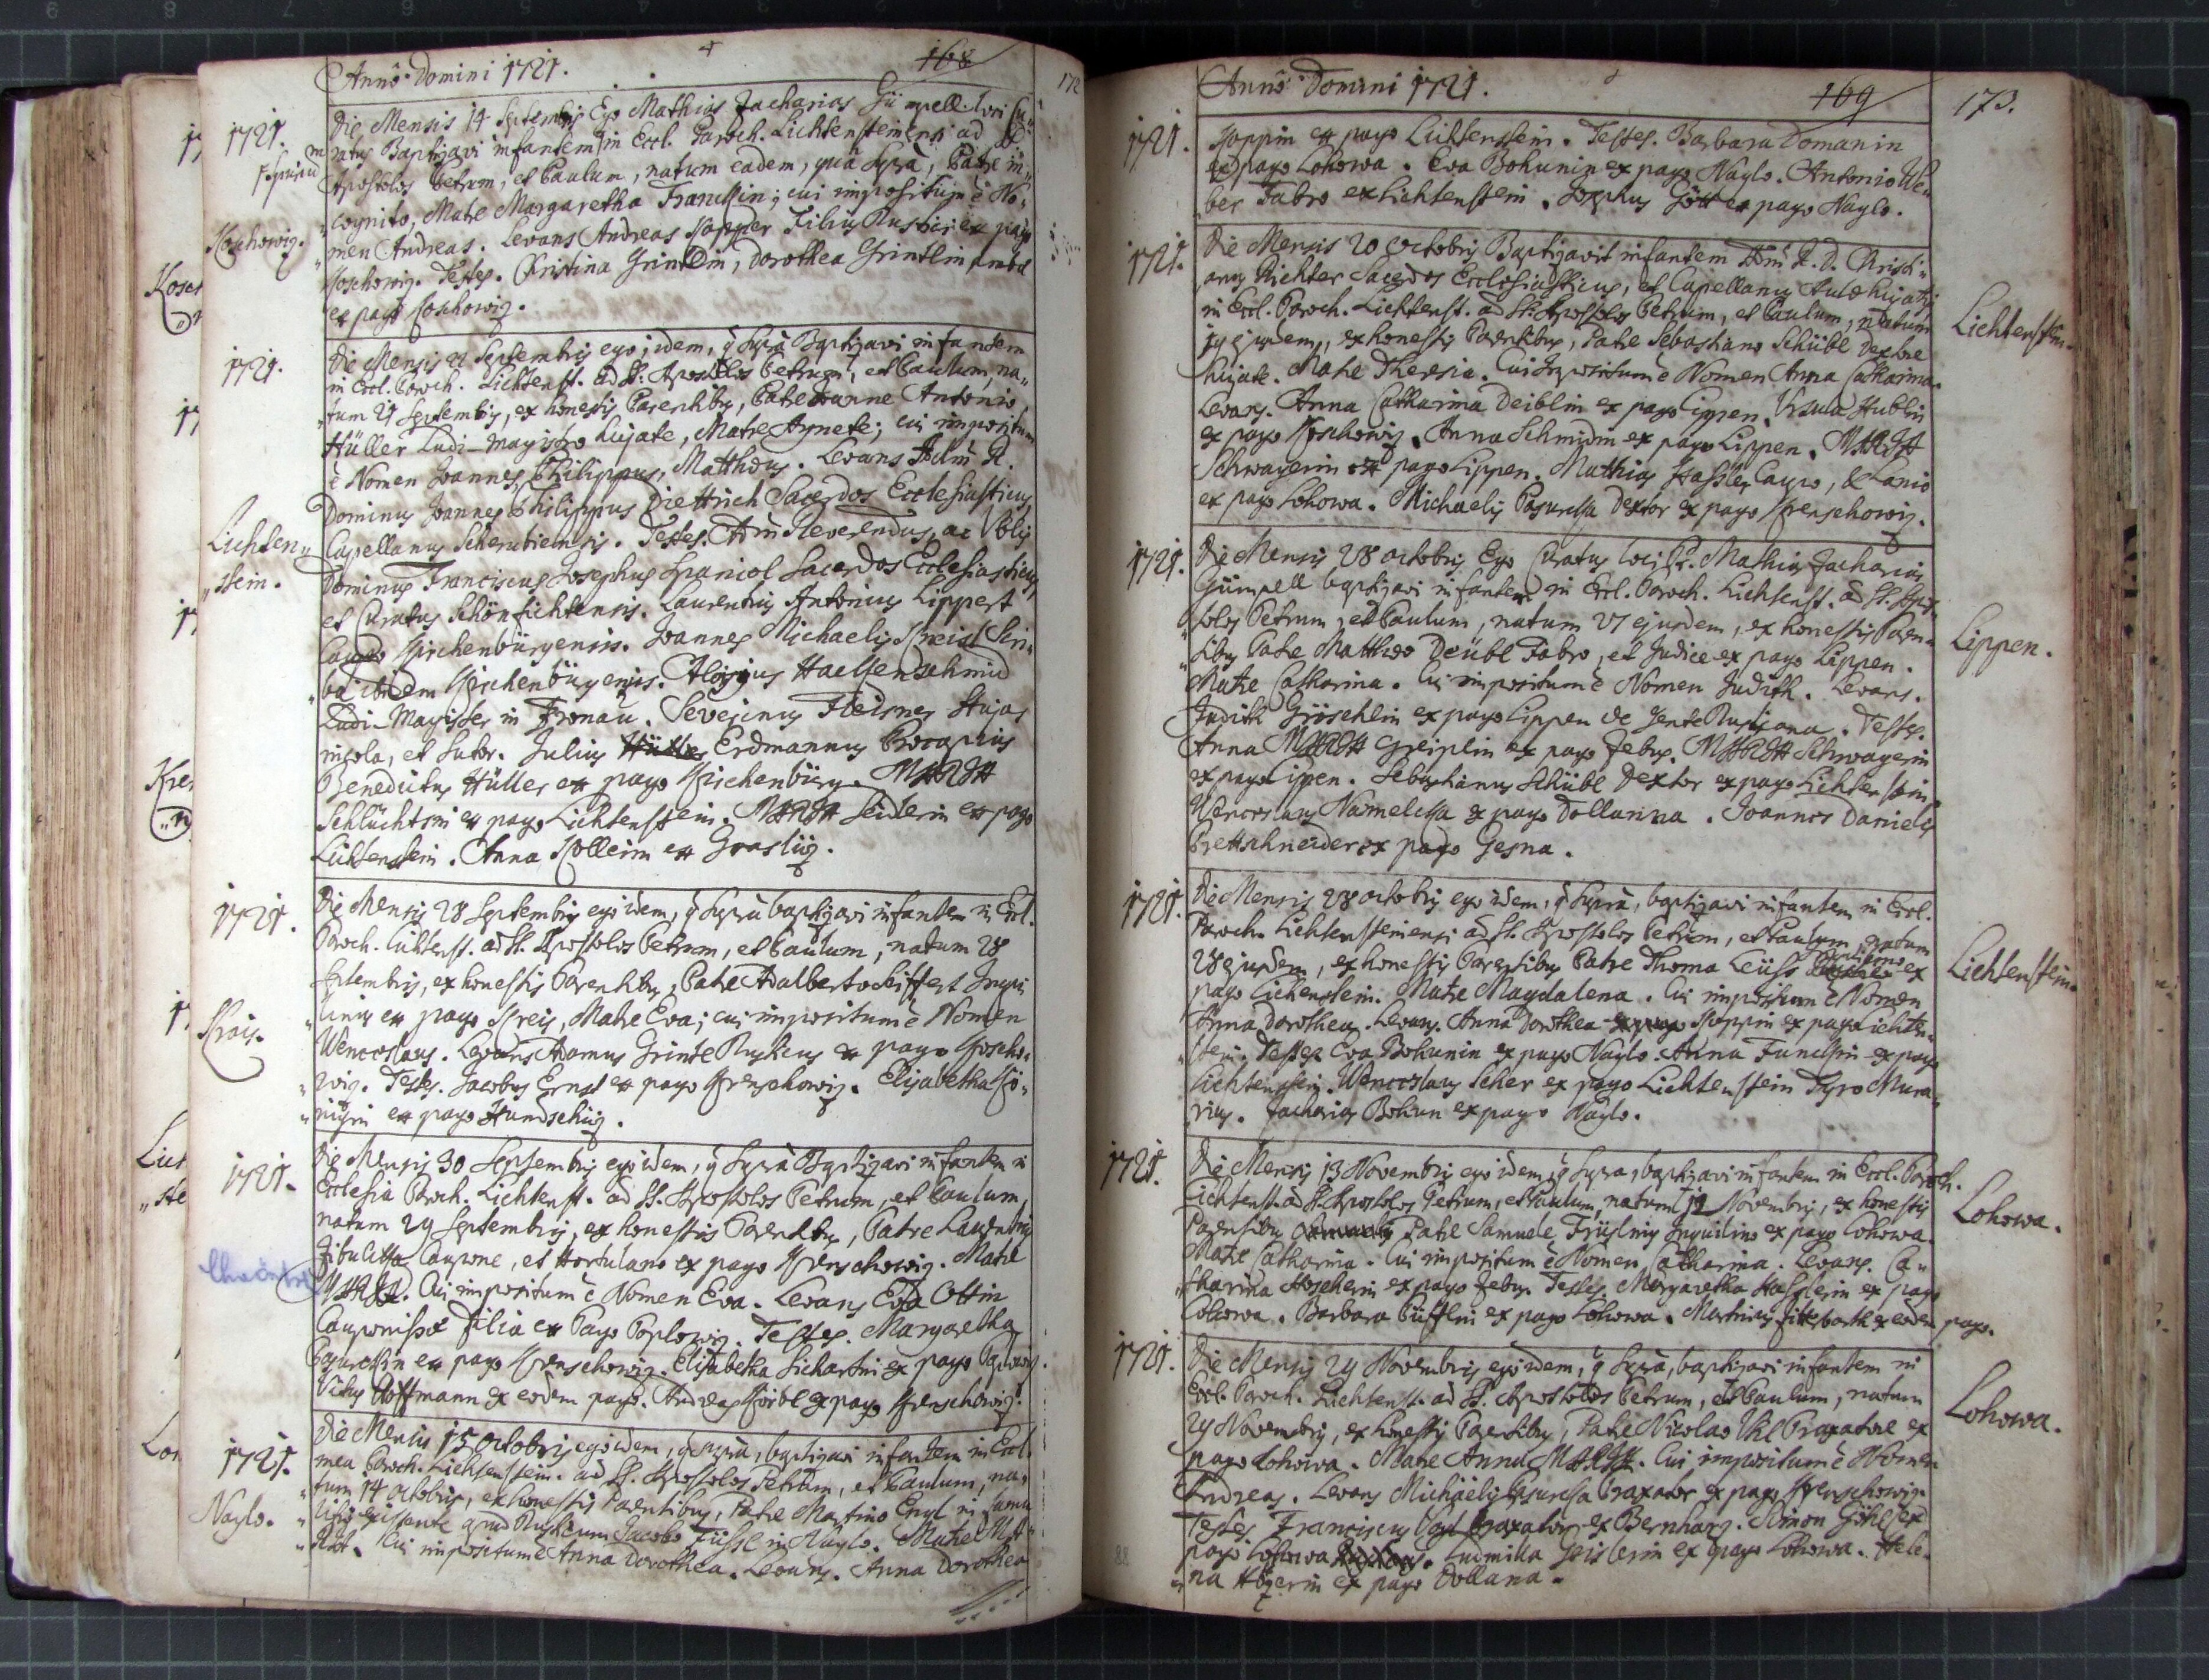 Anno Domini 1721.
168
172
1721.
Die Mensis 14 Septembris Ego Mathias Zacharias Gümpell loci Cu„
Spurium
„ratus Baptizavi infantem in Eccl. Paroch. Lichtensteinensi ad SS.
Apostolos Petrum, et Paulum, natum eadem, qua supra, Patre in„
„cognito, Matre Margaretha ; cui impositum ē No„
Koschowiz.
„men Andreas. Levans Andreas Kopper Filius Rustici ex pago
Koschowiz. Testes. Christina Grintlin, Dorothea Grintlin ambæ
ex pago Coschowiz.
1721.
Die Mensis 21 Septembris ego idem, q̄ supra Baptizavi infantem
in Eccl. Paroch. Lichtenst. ad SS. Apostolos Petrum, et Paulum, na„
„tum 21 Septembris, ex honestis Parentibus, Patre Joanne Antonio
Hüller Ludi-magistro hujate, Matre Agnete; cui impositum
ē Nomen Joannes, Philippus, Matthæus. Levans Adm̄ R.
Dominus Joannes Philippus Diettrich Sacerdos Ecclesiasticus,
Lichten„
Capellanus . Testes. Adm̄ Reverendus, ac Nobis
„stein.
Dominus Franciscus Josephus Spaniol Sacerdos Ecclesiasticus,
et Curatus Schönfichtensis. Laurentius Antonius Lippert
Caupo Kirchenbürgensis. Joannes Michaelis Kreisl Scri„
„ba ibidem Kirchenbürgensis. Aloysius Haeffenschmid
Ludi-Magister in Fronau. Severinus Fleisner Hujas
incola, et Sutor. Julius Erdmannus Procopius
Benedictus Hüller ex pago Kirchenbürg. MARIA
Schlüchtin ex pago Lichtenstein. MARIA Seidlerin ex pago
Lichtenstein. Anna Kollerin ex Grasliz.
1721.
Die Mensis 28 Septembris ego idem, q̄ supra baptizavi infantem in Eccl.
Paroch. Lichtenst. ad SS. Apostolos Petrum, et Paulum, natum 28
Septembris, ex honestis Parentibus, Patre Adalberto Siffert Inqui„
Krais.
„lino ex pago Kreis, Matre Eva; cui impositum ē Nomen
Wenceslaus. Levans Adamus Grintl Rusticus ex pago Koscho„
„wiz. Testes. Jacobus Ernst ex pago Krenschowiz. Elisabetha Kö„
„nigin ex pago Hundschiz.
1721.
Die Mensis 30 Septembris ego idem, q̄ supra Baptizavi infantem in
Ecclesia Paroch. Lichtenst. ad SS. Apostolos Petrum, et Paulum,
natum 29 Septembris, ex honestis Parentibus, Patre Laurentio
Zibulkha Caupone, et Hortulano ex pago Krenschowiz. Matre
MARIA. Cui impositum ē Nomen Eva. Levans Eva Ottin
Cauponissæ filia ex Pago Poplowiz. Testes. Margaretha
ex pago Krenschowiz. Elisabetha Lichartin ex pago
Vitus Hoffmann ex eodem pago. Andreas Körbl ex pago Krenschowiz.
1721.
Die Mensis 15 Octobris ego idem, q̄ supra, baptizavi infantem in Eccl.
mea Paroch. Lichtenstein. ad SS. Apostolos Petrum, et Paulum, na„
„tum 14 Octobris, ex honestis Parentibus, Patre Martino Engl in famu„
Naglo.
„litio existente apud Rusticum Jacobo Füssl in Naglo. Matre MA„
„RIA. Cui impositum ē Anna Dorothea. Levans. Anna Dorothea
Anno Domini 1721.
169
173.
1721.
Koppin ex pago Lichtenstein. Testes. Barbara Domanin
ex pago Lohowa. Eva Bohunin ex pago Naglo. Antonio We„
„ber Fabro ex Lichtenstein. Josephus Gött ex pago Naglo.
1721.
Die Mensis 20 Octobris Baptizavit infantem Adm̄ R. D. Christi„
„anus Richter Sacerdos Ecclesiasticus, et Capellanus Aulæ hujatis
in Eccl. Paroch. Lichtenst. ad SS. Apostolos Petrum, et Paulum, natum
Lichtenstein.
19 ejusdem, ex honestis Parentibus, Patre Sebastiano Schübl Dextore
hujate. Matre Theresia. Cui Impositum ē Nomen Anna Catharina.
Levans. Anna Catharina Deiblin ex pago Lippen. Ursula Hublin
ex pago Koschowiz. Anna Schmidin ex pago Lippen. MARIA
Schwagerin ex pago Lippen. Mathias Hassler Caupo, & Lanio
ex pago Lohowa. Michaelis Pasurcka Dextor ex pago Krenschowiz.
1721.
Die Mensis 28 Octobris Ego Curatus loci P. Mathias Zacharias
Gümpell baptizavi infantem in Eccl. Paroch. Lichtenst. ad SS. Apos„
„tolos Petrum, et Paulum, natum 27 ejusdem, ex honestis Paren„
Lippen.
„tibus Patre Matthæo Deübl Fabro, et Judice ex pago Lippen.
Matre Catharina. Cui impositum ē Nomen Judith. Levans.
Judith Gröschlin ex pago Lippen de Gente Rusticana. Testes.
Anna MARIA Greiplin ex pago Zebus. MARIA Schwagerin
ex pago Lippen. Sebastianus Schübl Dextor ex pago Lichtenstein
Wenceslaus Namelcka ex pago Dollanna. Joannes Daniels
Prettschneider ex pago Gesna.
1721.
Die Mensis 28 Octobris ego idem, q̄ supra, baptizavi infantem in Eccl.
Paroch. Lichtensteinensi ad SS. Apostolos Petrum, et Paulum, natum
28 ejusdem, ex honestis Parentibus Patre Thoma Leüss ex
Lichtenstein.
pago Lichtenstein. Matre Magdalena. Cui impositum ē Nomen
Anna Dorothea. Levans. Anna Dorothea Koppin ex pago Lichten„
„stein. Testes Eva Bohunin ex pago Naglo. Anna ex pago
Lichtenstein. Wenceslaus Scher ex pago Lichtenstein Tyro Mura„
„rius. Zacharias Bohun ex pago Naglo.
1721.
Die Mensis 13 Novembris ego idem, q̄ supra, baptizavi infantem in Eccl. Paroch.
Lichtenst. ad SS. Apostolos Petrum, et Paulum, natum 12 Novembris, ex honestis
Lohowa.
Parentibus Patre Samuele Inquilino ex pago Lohowa.
Matre Catharina. Cui impositum ē Nomen Catharina. Levans. Ca„
„tharina Hoscherin ex pago Zebus. Testes. Margaretha Hasslerin ex pago
Lohowa. Barbara ex pago Lohowa. Martinus Fitterbarth ex eodem pago.
1721.
Die Mensis 29 Novembris ego idem, q̄ supra, baptizavi infantem in
Eccl. Paroch. Lichtenst. ad SS. Apostolos Petrum, et Paulum, natum
Lohowa.
29 Novembris, ex honestis Parentibus, Patre Nicolao Ukl Braxatore ex
pago Lohowa. Matre Anna MARIA. Cui impositum ē Nomen
Andreas. Levans Michaelis Pasurcka Braxator ex pago Krenschowiz.
Testes Franciscus Vogt Braxator ex Bernharz. Simon Göhl ex
pago Lohowa. Ludmilla Geislerin ex pago Lohowa. Hele„
88
„na ex pago Dollana.